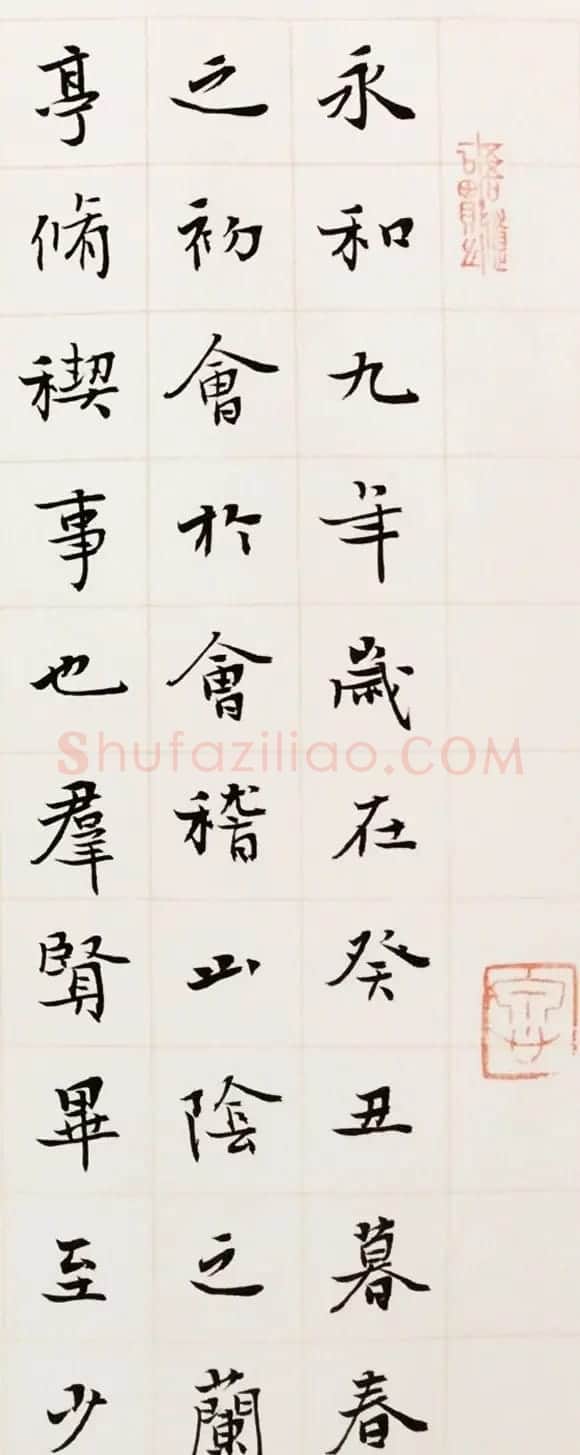 永和九年歲在癸丑暮春
之初會於會稽山陰之蘭
亭脩稧事也羣賢畢至少
Shufaziliao.COM